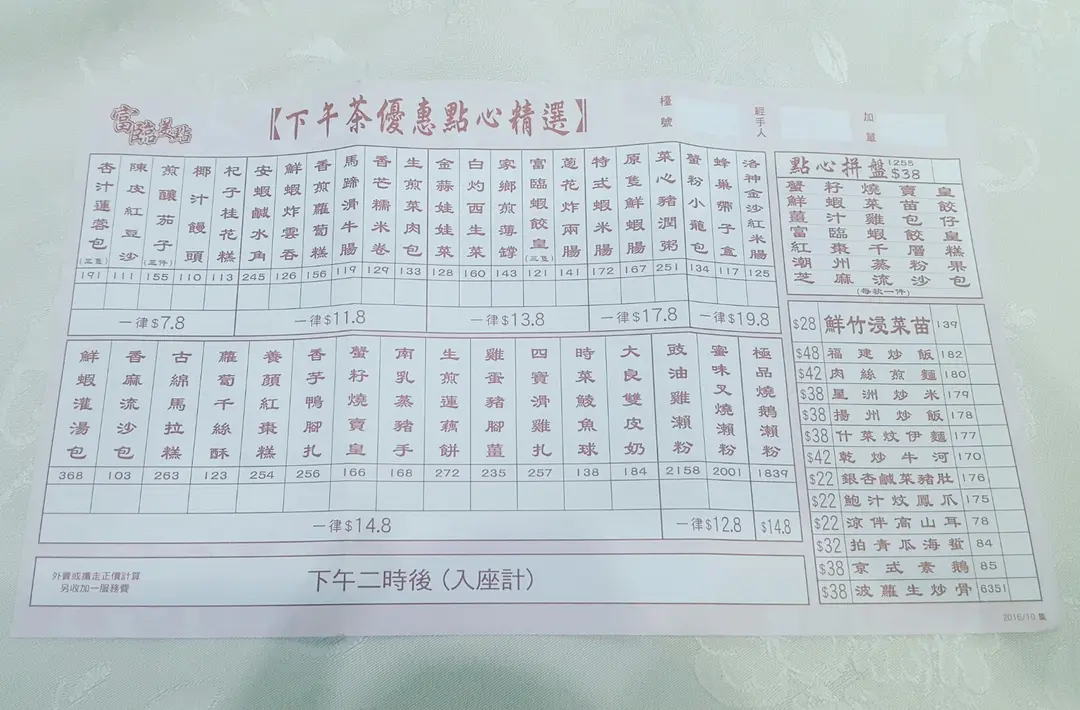 富臨美點
【下午茶優惠點心精選】
檯號
經手人
加單
杏汁蓮蓉包(三隻) 191
陳皮紅豆沙 111
煎釀茄子(三件) 155
椰汁饅頭 110
杞子桂花糕 113
安蝦鹹水角 245
鮮蝦炸雲吞 126
香煎蘿蔔糕 156
馬蹄滑牛腸 119
香芒糯米卷 129
生煎菜肉包 133
金蒜娃娃菜 128
白灼西生菜 160
家鄉煎薄罉 143
富臨蝦餃皇(三隻) 121
蔥花炸兩腸 141
特式蝦米腸 172
原隻鮮蝦腸 167
菜心豬潤粥 251
蟹粉小龍包 134
蜂巢帶子盒 117
洛神金沙紅米腸 125
一律$7.8
一律$11.8
一律$13.8
一律$17.8
一律$19.8
鮮蝦灌湯包 368
香麻流沙包 103
古綿馬拉糕 263
蘿蔔千絲酥 123
養顏紅棗糕 254
香芋鴨腳扎 256
蟹籽燒賣皇 166
南乳蒸豬手 168
生煎蓮藕餅 272
雞蛋豬腳薑 235
四寶滑雞扎 257
時菜鯪魚球 138
大良雙皮奶 184
豉油雞瀨粉 2158
蜜味叉燒瀨粉 2001
極品燒鵝瀨粉 1839
一律$14.8
一律$12.8
$14.8
外賣或攜走正價計算
另收加一服務費
下午二時後(入座計)
點心拼盤 1255 $38
蟹籽燒賣皇
鮮蝦菜苗餃
薑汁雞包仔
富臨蝦餃皇
紅棗千層糕
潮州蒸粉果
芝麻流沙包
(每款一件)
$28 鮮竹浸菜苗 139
$48 福建炒飯 182
$42 肉絲煎麵 180
$38 星洲炒米 179
$38 揚州炒飯 178
$38 什菜炆伊麵 177
$42 乾炒牛河 170
$22 銀杏鹹菜豬肚 176
$22 鮑汁炆鳳爪 175
$22 涼伴高山耳 78
$32 拍青瓜海蜇 84
$38 京式素鵝 85
$38 波蘿生炒骨 6351
2016/10